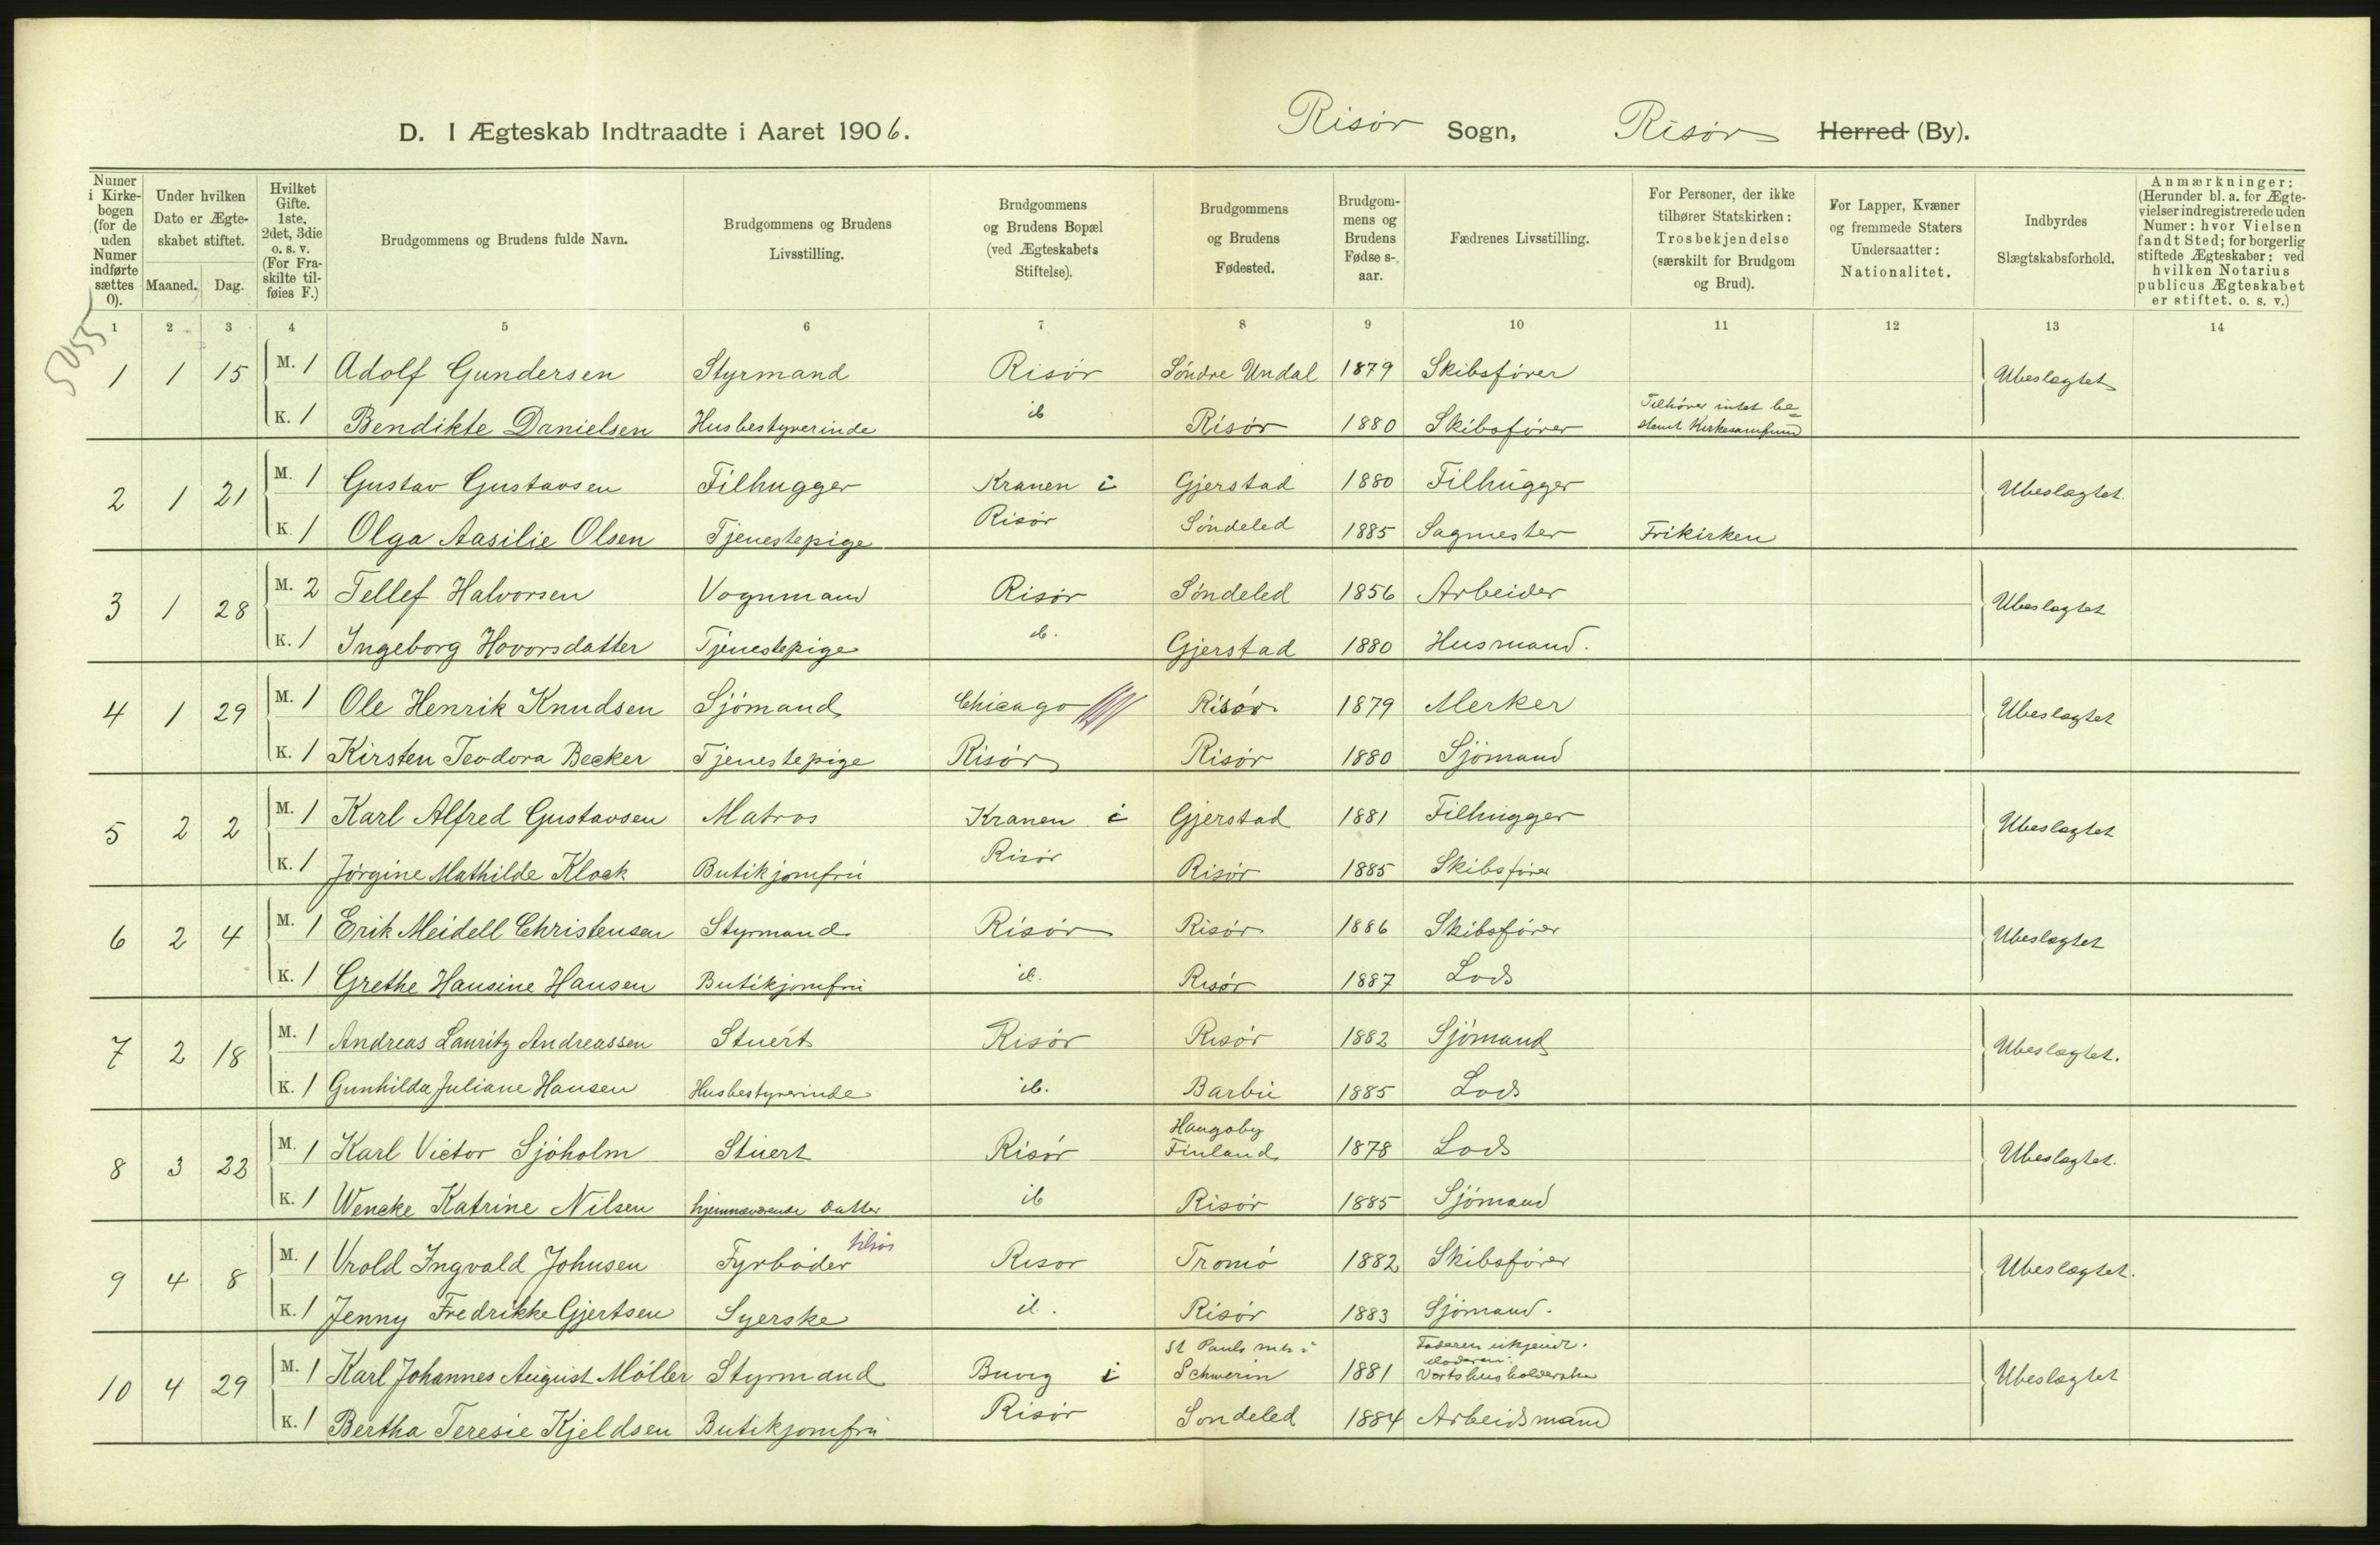 D. I Ægteskab Indtraadte i Aaret 1906. Risør Sogn, Risør Herred (By).
Numer i Kirkebogen (for de uden Numer indførte sættes 0).
Under hvilken Dato er Ægteskabet stiftet.
Maaned. Dag.
Hvilket Gifte. 1ste, 2det, 3die o. s. v. (For Fraskilte tilføies F.)
Brudgommens og Brudens fulde Navn.
Brudgommens og Brudens Livsstilling.
Brudgommens og Brudens Bopæl (ved Ægteskabets Stiftelse).
Brudgommens og Brudens Fødested.
Brudgommens og Brudens Fødselsaar.
Fædrenes Livsstilling.
For Personer, der ikke tilhører Statskirken: Trosbekjendelse (særskilt for Brudgom og Brud).
For Lapper, Kvæner og fremmede Staters Undersaatter: Nationalitet.
Indbyrdes Slægtskabsforhold.
Anmærkninger: (Herunder bl. a. for Ægtevielser indregistrerede uden Numer: hvor Vielsen fandt Sted; for borgerlig stiftede Ægteskaber: ved hvilken Notarius publicus Ægteskabet er stiftet. o. s. v.)
1 2 3 4 5 6 7 8 9 10 11 12 13 14
5055
1 1 15 M. 1 Adolf Gundersen Styrmand Risør Søndre Undal 1879 Skibsfører Ubeslægtet
K. 1 Bendikte Danielsen Husbestyrerinde ib Risør 1880 Skibsfører Tilhører intet bestemt Kirkesamfund
2 1 21 M. 1 Gustav Gustavsen Filhugger Kranen i Gjerstad 1880 Filhugger Ubeslægtet.
K 1 Olga Aasilie Olsen Tjenestepige Risør Søndeled 1885 Sagmester Frikirken
3 1 28 M. 2 Tellef Halvorsen Vognmand Risør Søndeled 1856 Arbeider Ubeslægtet
K. 1 Ingeborg Hovorsdatter Tjenestepige ib. Gjerstad 1880 Husmand.
4 1 29 M. 1 Ole Henrik Knudsen Sjømand Chicago Risør 1879 Merker Ubeslægtet
K. 1 Kirsten Teodora Becker Tjenestepige Risør Risør 1880 Sjømand
5 2 2 M. 1 Karl Alfred Gustavsen Matros Kranen i Gjerstad 1881 Filhugger Ubeslægtet
K. 1 Jørgine Mathilde Klock Butikjomfru Risør Risør 1885 Skibsfører
6 2 4 M. 1 Erik Meidell Christensen Styrmand Risør Risør 1886 Skibsfører Ubeslægtet
K. 1 Grethe Hansine Hansen Butikjomfru ib. Risør 1887 Lods
7 2 18 M. 1 Andreas Lauritz Andreassen Stuert Risør Risør 1882 Sjømand Ubeslægtet.
K. 1 Gunhilda Juliane Hansen Husbestyrerinde ib. Barbu 1885 Lods
8 3 22 M. 1 Karl Victor Sjøholm Stuert Risør Hangøby Finland 1878 Lods Ubeslægtet.
K. 1 Wencke Katrine Nilsen hjemmeværende Datter ib Risør 1885 Sjømand
9 4 8 M. 1 Vrold Ingvald Johnsen Fyrbøder tilsøs Risør Tromø 1882 Skibsfører Ubeslægtet.
K. 1 Jenny Fredrikke Gjertsen Syerske ib. Risør 1883 Sjømand.
10 4 29 M. 1 Karl Johannes August Møller Styrmand Buvig i St Pauls mh i Schwerin 1881 Faderen ukjendt. Moderen: Vertshusholderske Ubeslægtet
K. 1 Bertha Teresie Kjeldsen Butikjomfru Risør Søndeled 1884 Arbeidsmand